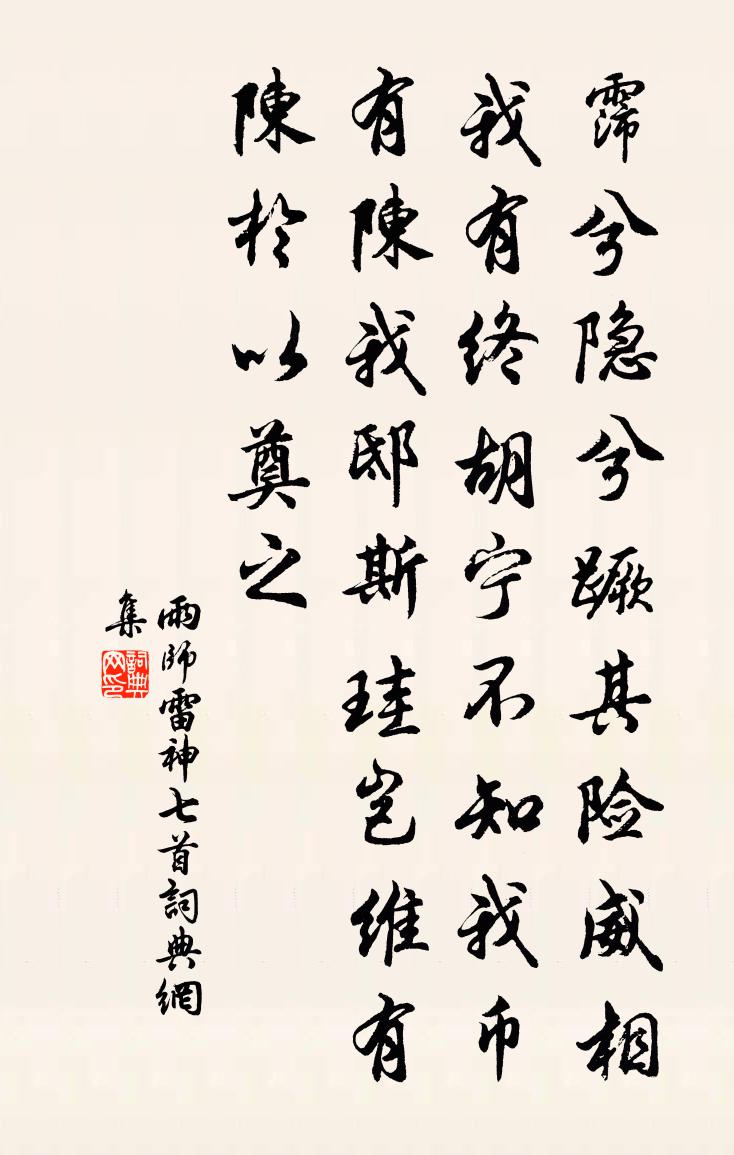 霈兮隐兮蹶其险威相
我有终胡宁不知我币
有陳我邸斯珪岂維有
陳於以奠之
雨師雷神七首詞典網
集
詞典网印